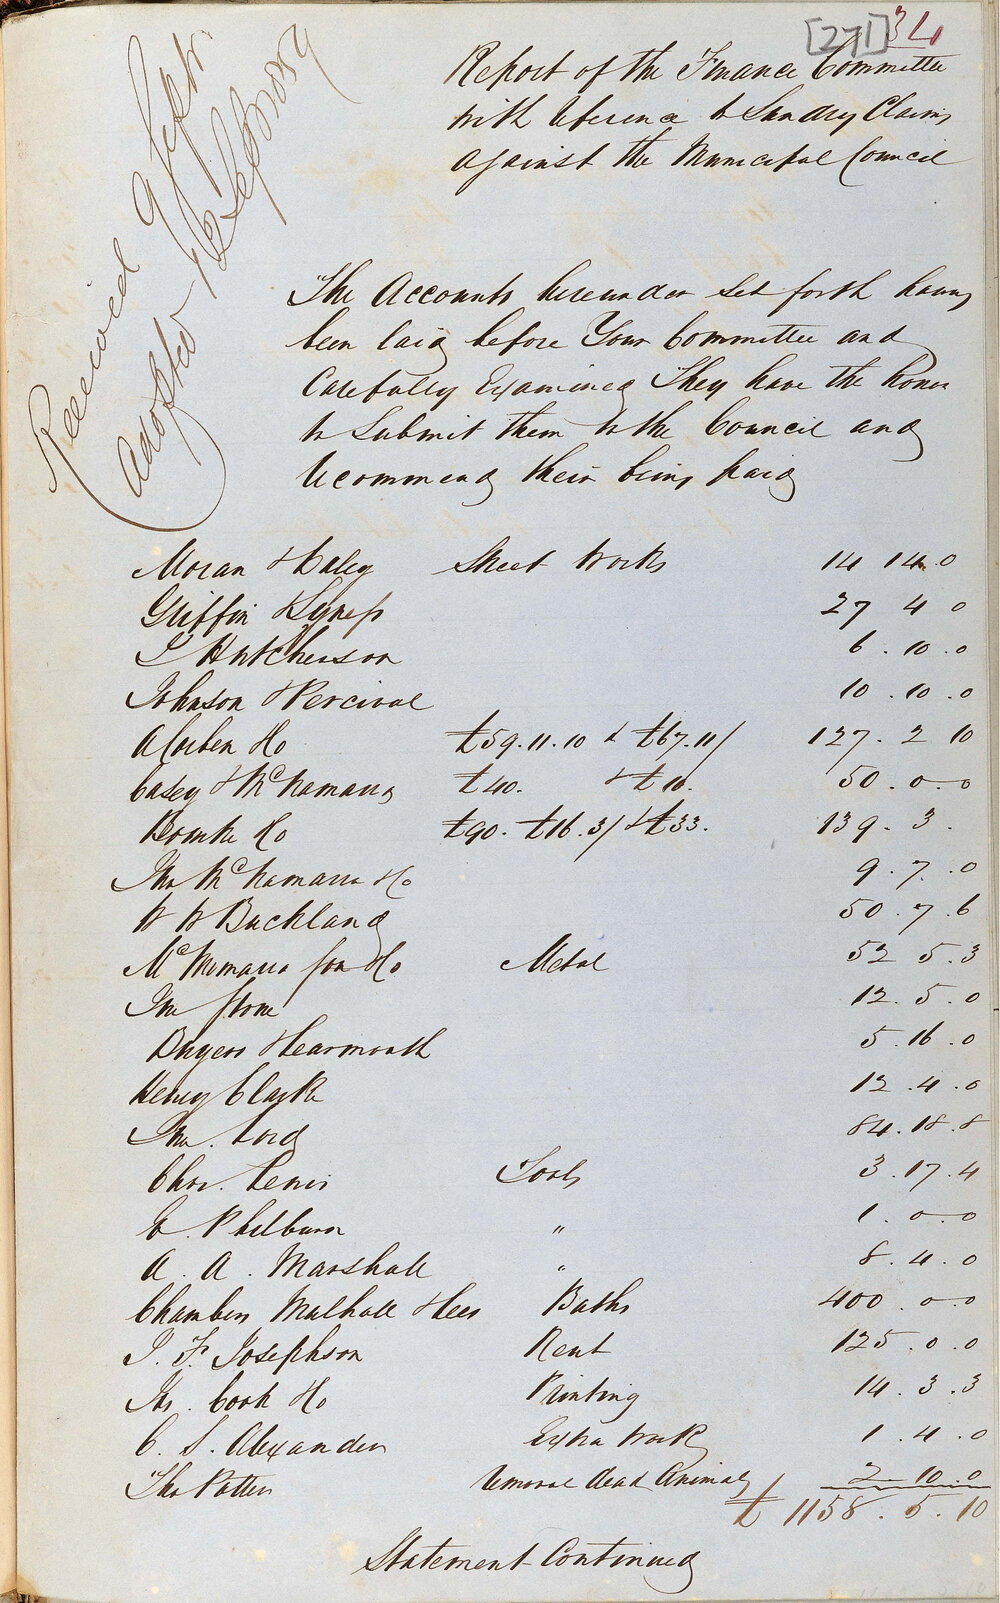 [271] 34
Report of the Finance Committee
with reference to Sundry Claims
against the Municipal Council
Received 9 Septr
Adopted 16 Sep
The Accounts hereunder set forth having
been laid before Your Committee and
Carefully Examined They have the honor
to Submit them to the Council and
recommend their being paid
Moran & Daley Street Works 14 14 0
Griffin & Lyness 27 4 0
J Hutchenson 6 . 10 . 0
Johnson & Percival 10 . 10 . 0
A Corben & Co £59.11.10 & £67.11/ 127 . 2 10
Casey & McNamara £40. & £10. 50 . 0 . 0
Bourke & Co £90. £16.3/ & £33. 139 . 3 .
Thos McNamara & Co 9 . 7 . 0
W W Buckland 50 . 7 . 6
McNamara Son & Co Metal 52 5 . 3
Jno Stone 12 . 5 . 0
Buyers & Learmonth 5 . 16 . 0
Henry Clarke 12 . 4 . 0
Jno. Lord 84 . 18 . 8
Chas. Lewis Tools 3 . 17 . 4
E. Philburn " 1 . 0 . 0
A. A. Marshall " 8 . 4 . 0
Chambers Mulhall & Lees Baths 400 . 0 . 0
J. F. Josephson Rent 125 . 0 . 0
Ths. Cook & Co Printing 14 . 3 . 3
C. S. Alexander Extra Work 1 . 4 . 0
Thos Patten removal dead Animals 2 10 . 0
£ 1158 . 5 . 10
Statement Continued